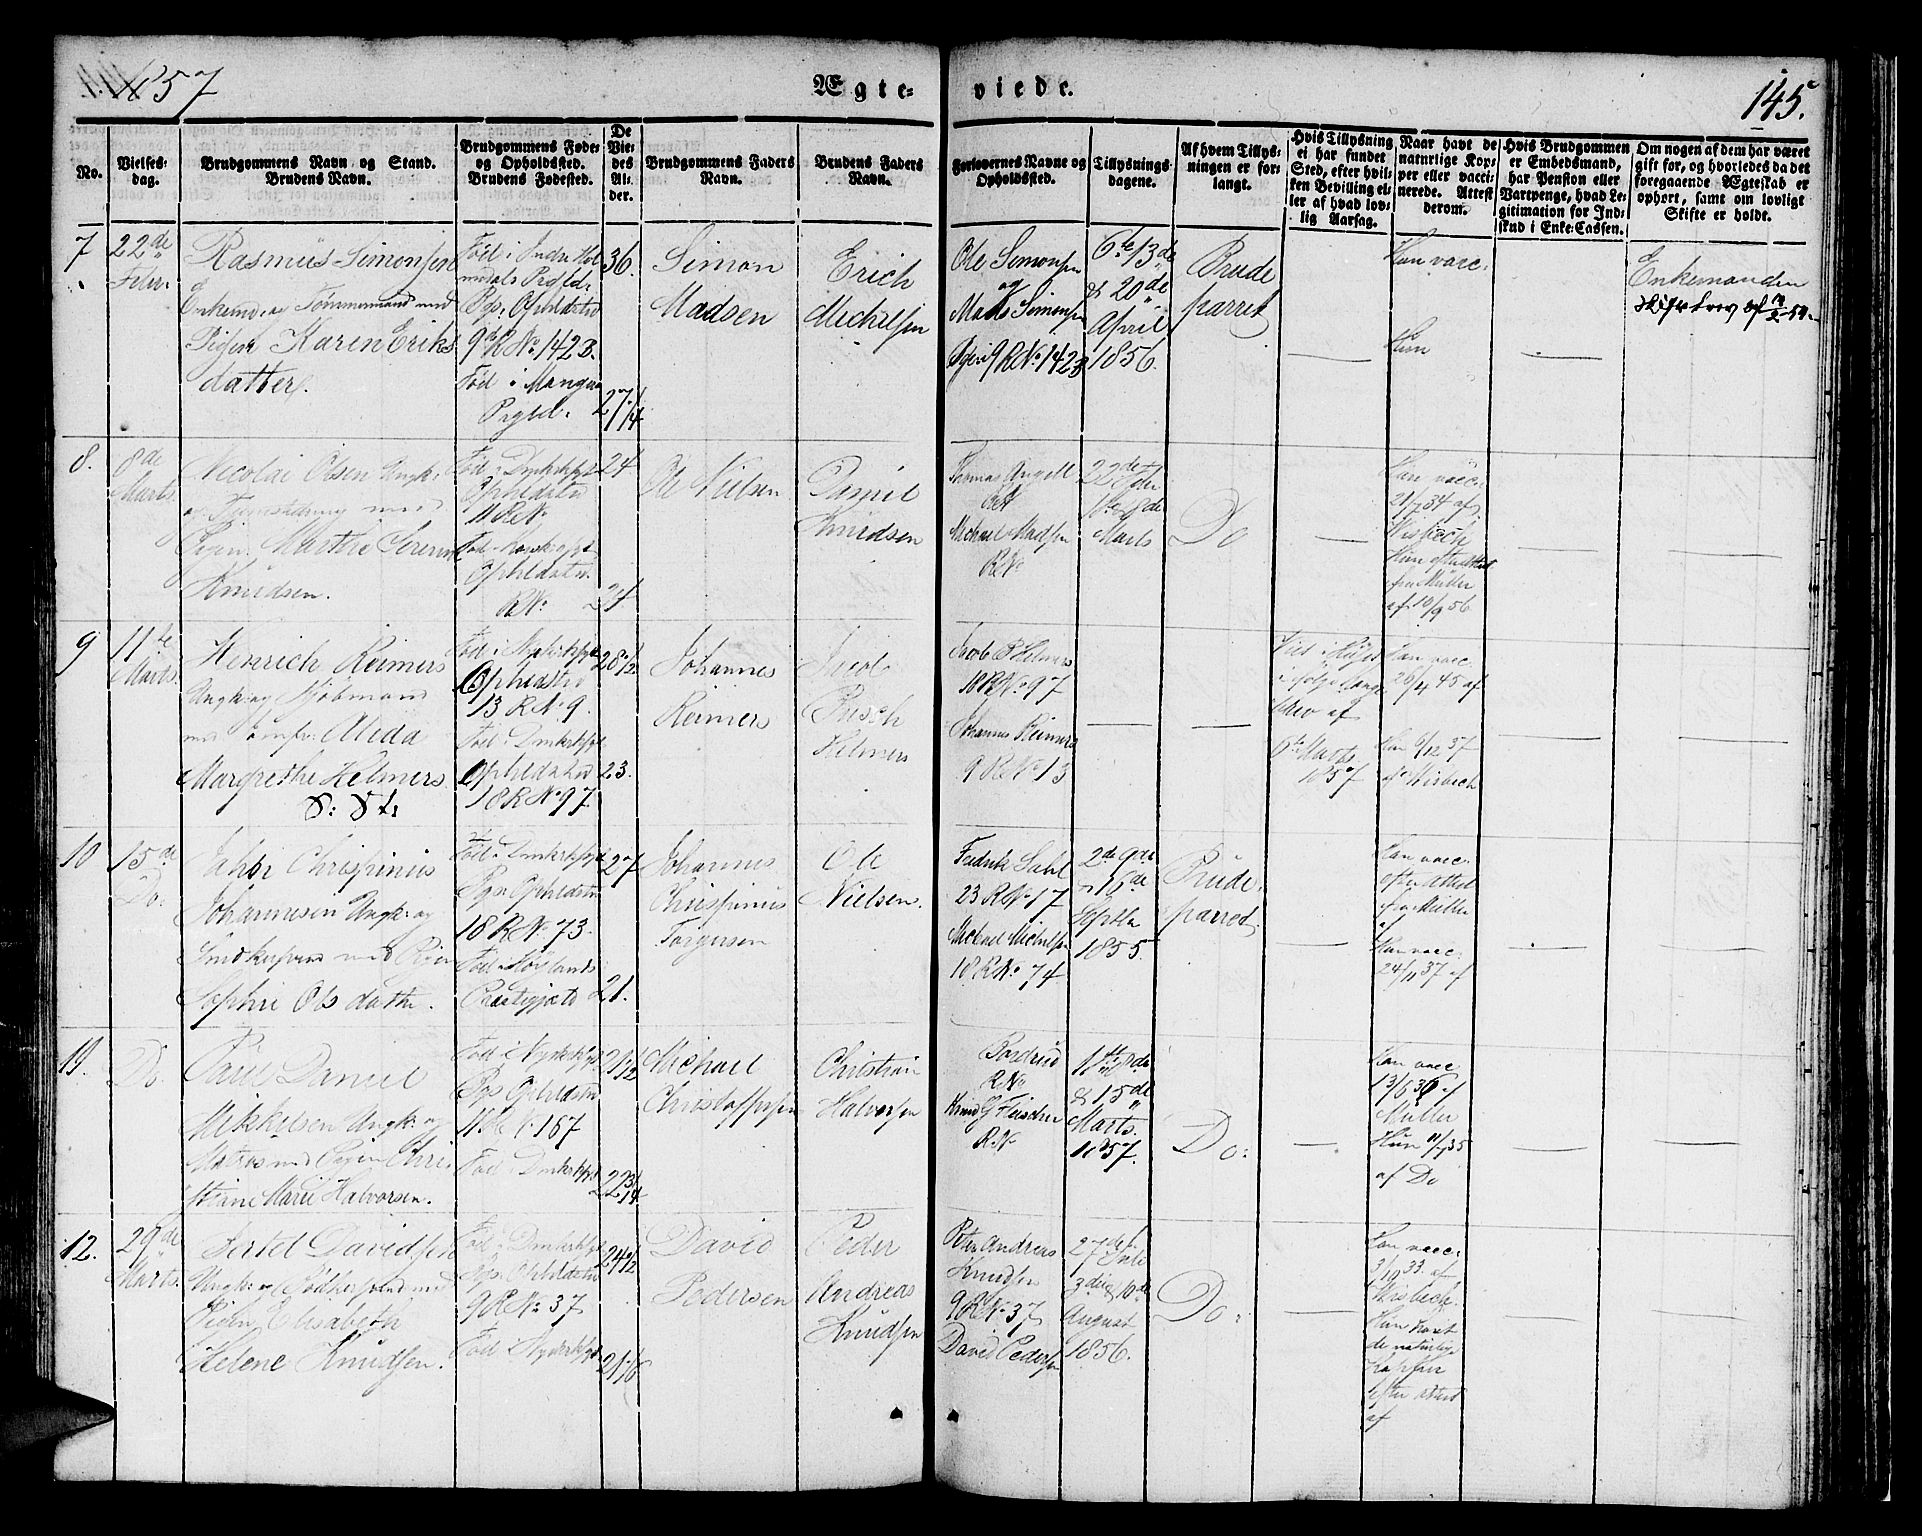 1857
Ægte-
viede.
145.
No.
Vielses-
dag.
Brudgommens Navn og Stand.
Brudens Navn.
Brudgommens Føde-
og Opholdssted.
Brudens Fødested.
De
Vie-
des
Al-
der.
Brudgommens Faders
Navn.
Brudens Faders
Navn.
Forlovernes Navne og
Opholdssted.
Tillysnings-
dagene.
Af hvem Tillys-
ningen er for-
langt.
Hvis Tillysning
ei har fundet
Sted, efter hvil-
ken Bevilling el-
ler af hvad lov-
lig Aarsag.
Naar havt de
naturlige Kop-
per eller vacci-
nerede. Attest
derom.
Hvis Brudgommen
er Embedsmand,
har Pension eller
Vartpenge, hvad Le-
gitimation for Ind-
skud i Enke-Cassen.
Om nogen af dem har været
gift før, og hvorledes da det
foregaaende Ægteskab er
ophørt, samt om lovligt
Skifte er holdt.
7
22de
Febr.
Rasmus Simonsen
Enkemd. og Tømmermand med
Pigen Karen Eriks
datter.
Fød i Indre Hol
mdals Prgld.
Pgs. Opholdsted
9d R No. 1423.
Fød i Manger
Prgld.
36.
27 1/4
Simon
Madsen
Erich
Michelsen
Ole Simonsen
og
Mads Simonsen
Begge i 9 R No. 1423
6te 13de
& 20de
April
1856.
Brude
parret
Han vacc.
Hun
Enkemanden
Skifte brev af
8.
8de
Marts.
Nicolai Olsen Ungk.
og med
Pigen Marthe Serene
Knudsen.
Fød i Dmkirksgt
Opholdsted
11 R No
Fød i Korskgt
Opholdsted.
R No.
24
Ole Nielsen
Daniel
Knudsen
Thomas Angell
R No
Michael Madsen
R No
22de Febr
1ste & 8de
Marts
Do
Han vacc.
21/7 34 af
Wisbech
Hun efter Attest
fra Müller
af 10/9 56
9
11te
Marts.
Henrich Reimers
Ungk. og Kjøbmand
med Jomfr. Alida
Margrethe Helmers
Fød i Nykirksgt
Opholdsted
13 R No 9.
Fød i Dmkirksgt
Opholdsted
18 R No 97
28 1/2
23.
Johannes
Reimers
Jacob
Busch
Helmers
Jacob B Helmers
18 R No 97
Johannes Reimers
9 R No 13
Viet i Huset
i følge Konge
brev af
6te Marts
1857
Han vacc.
26/4 45 af
Hun 6/12 37
af Wisbech
10
15de
Do.
Jahn Chrispinus
Johannesen Ungk. og
Smedkersvend med Pigen
Sophie Ols datter.
Fød i Dmkirksgt
Pgs. Opholdsted
18 R No. 73.
Fød i Høylands
Præstegjæld
27
21.
Johannes
Chrispinus
Torgersen
Ole
Nielsen.
Fredrik Dahl
23 R No 17
Michael Michelsen
18 R No 74
2de 9de
& 16de
Septbr
1855.
Brude
parret.
Han vacc.
efter Attest
fra Müller
af
Hun vacc.
24/11 37 af
11.
Do.
Paul Daniel
Mikkelsen Ungk. og
Matros med Pigen Chri
stiane Marie Halvorsen.
Fød i Nykirksgt
Pgs Opholdsted
11 R No. 167
Fød i Dmkirksgt
21 1/12
22 3/4
Michael
Christoffersen
Christian
Halvorsen
R No
Knud G Fleischer
R. No
1ste 8de
& 15de
Marts.
1857.
Do.
Han vacc
13/6 36 af
Müller
Hun 11/7 35
af Do
12.
29de
Marts.
Sertel Davidsen
Ungk. og Bødkersvend med
Pigen Elisabeth
Helene Knudsen.
Fød i Dmkirksgt
Pgs. Opholdsted
9 R No. 37
Fød i Nykirksgt
24 2/12
21 1/6
David
Pedersen
Peder
Andreas
Knudsen
Peter Andreas
Knudsen
9 R No 37
David Pedersen
27de Juli
3die & 10de
August
1856.
Do.
Han vacc.
3/10 33. af
Wisbech.
Hun havt
de naturlige
Kopper
efter Attest
af